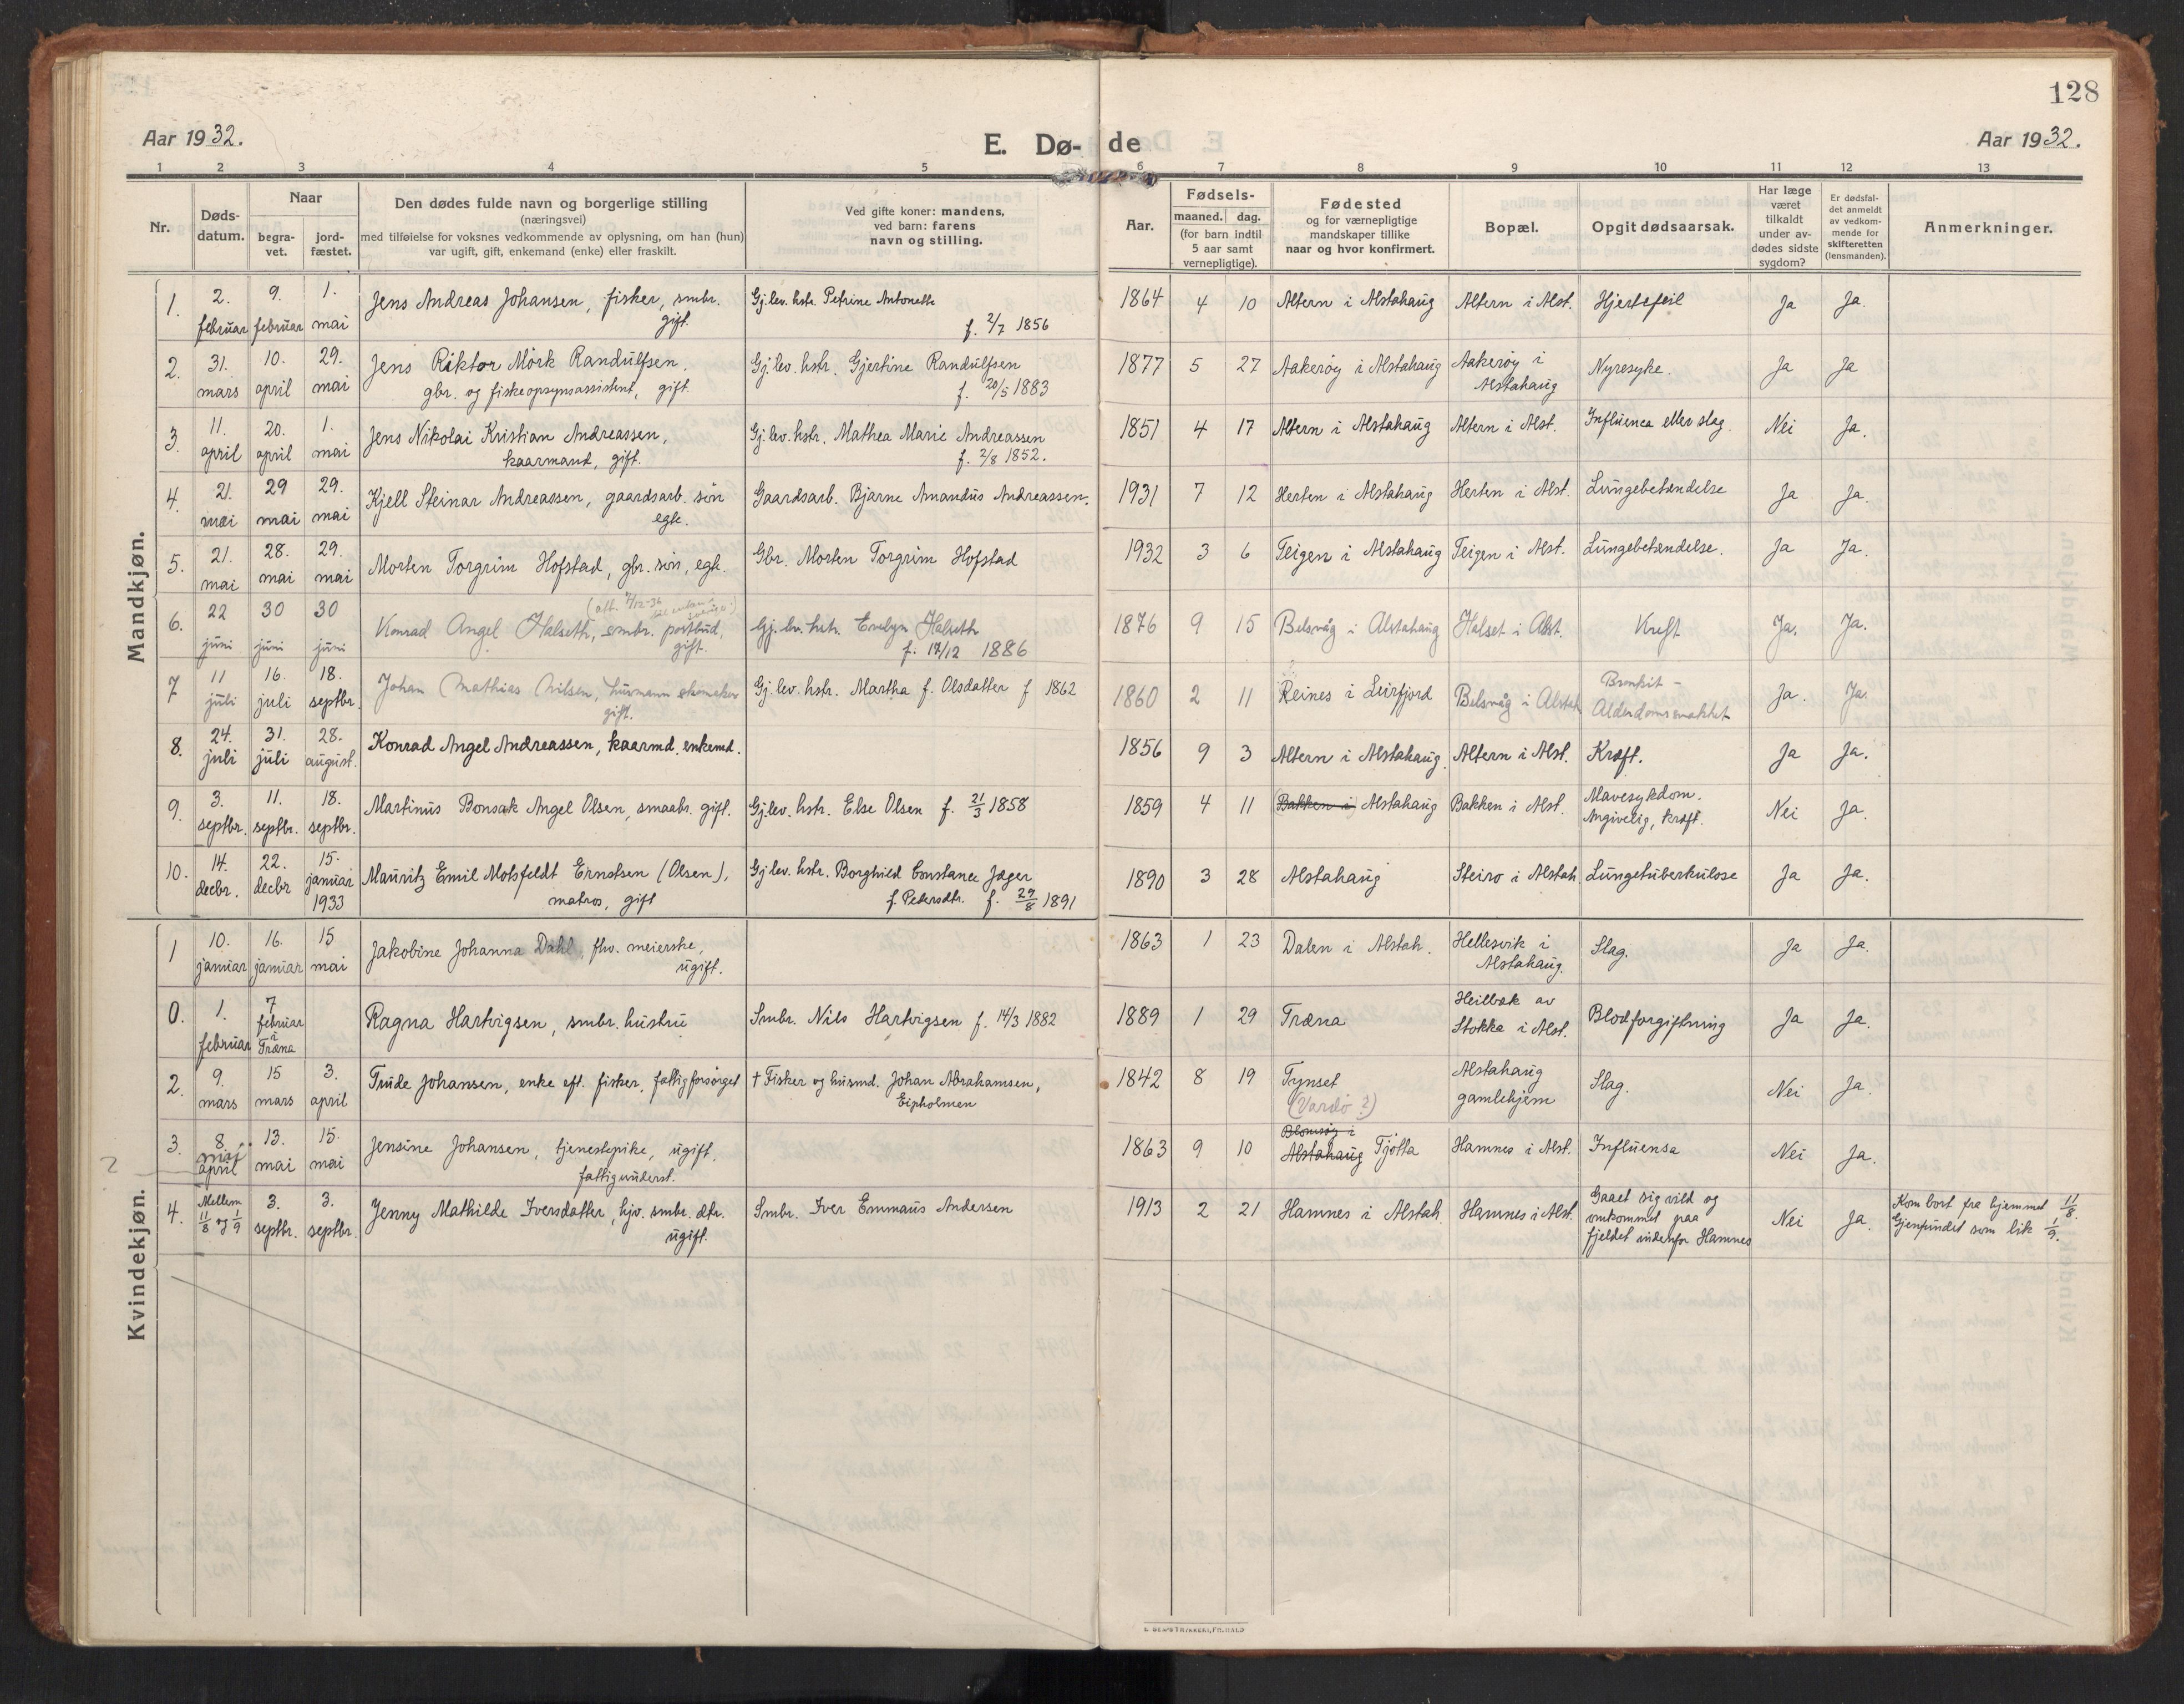 128
Aar 1932.
E. Dø- de
Aar 1932.
1 2 3 4 5 6 7 8 9 10 11 12 13
Nr.
Døds-
datum.
Naar
begra-
vet.
jord-
fæstet.
Den dødes fulde navn og borgerlige stilling
(næringsvei)
med tilføielse for voksnes vedkommende av oplysning, om han (hun)
var ugift, gift, enkemand (enke) eller fraskilt.
Ved gifte koner: mandens,
ved barn: farens
navn og stilling.
Aar.
Fødsels-
maaned. dag.
(for barn indtil
5 aar samt
vernepligtige).
Fødested
og for værnepligtige
mandskaper tillike
naar og hvor konfirmert.
Bopæl.
Opgit dødsaarsak.
Har læge
været
tilkaldt
under av-
dødes sidste
sygdom?
Er dødsfal-
det anmeldt
av vedkom-
mende for
skifteretten
(lensmanden).
Anmerkninger.
Mandkjøn.
1. 2. februar 9. februar 1. mai Jens Andreas Johansen, fisker, smbr. gift. Gj. lev. hstr. Petrine Antonette f. 2/7 1856 1864 4 10 Altern i Alstahaug Altern i Alst. Hjertefeil Ja Ja.
2. 31. mars 10. april 29. mai Jens Riktor Mörk Randulfsen, gbr. og fiskeopsynsassistent, gift. Gj. lev. hstr. Gjertine Randulfsen f. 20/5 1883 1877 5 27 Aakerøy i Alstahaug Aakerøy i Alstahaug Nyresyke. Ja Ja
3. 11. april 20. april 1. mai Jens Nikolai Kristian Andreassen, kaarmand, gift. Gj. lev. hstr. Mathea Marie Andreassen f. 2/8 1852. 1851 4 17 Altern i Alstahaug Altern i Alst. Influenca eller slag. Nei Ja.
4. 21. mai 29 mai 29. mai Kjell Steinar Andreassen, gaardsarb. søn egte. Gaardsarb. Bjarne Amandus Andreassen. 1931 7 12 Herten i Alstahaug Herten i Alst. Lungebetændelse Ja Ja.
5. 21. mai 28. mai 29. mai Morten Torgrim Hofstad, gbr. søn, egte. Gbr. Morten Torgrim Hofstad 1932 3 6 Teigen i Alstahaug Teigen i Alst. Lungebetændelse. Ja Ja.
6. 22 juni 30 juni 30 juni Konrad Angel Halseth, smbr. postbud, gift. Gj. lev. hstr. Evelyn Halseth f. 17/12 1886 1876 9 15 Belsvåg i Alstahaug Halset i Alst. Kreft Ja. Ja.
7 11 juli 16. juli 18. septbr. Johan Mathias Nilsen, husmann skomaker gift. Gj. lev. hstr. Martha f. Olsdatter f 1862 1860 2 11 Reines i Leirfjord Belsvåg i Alstah Bronkit - Alderdomssvakhet Ja. Ja.
8. 24. juli 31. juli 28. august. Konrad Angel Andreassen, kaarmd. enkemd. 1856 9 3 Altern i Alstahaug. Altern i Alst. Kræft. Ja Ja.
9. 3. septbr. 11. septbr. 18. septbr. Martinus Bonsak Angel Olsen, smaabr. gift. Gj. lev. hstr. Else Olsen f. 21/3 1858 1859 4 11 Bakken i Alstahaug Bakken i Alst. Mavesykdom. Angivelig, kræft. Nei Ja.
10. 14. decbr. 22. decbr 15. januar 1933 Mauritz Emil Motsfeldt Ernstsen (Olsen), matros, gift Gj. lev. hstr. Borghild Constance Jæger f. Pedersdtr. f. 29/8 1891 1890 3 28 Alstahaug Steiro i Alstah Lungetuberkulose Ja Ja.
Kvindekjøn.
1 10. januar 16. januar 15 mai Jakobine Johanna Dahl, fhv. meierske, ugift. 1863 1 23 Dalen i Alstah. Hellesvik i Alstahaug. Slag. Ja Ja.
0. 1. februar 7 februar i Træna Ragna Hartvigsen, smbr. hustru Smbr. Nils Hartvigsen f. 14/3 1882 1889 1 29 Træna Heilbæk av Stokka i Alst. Blodforgiftning Ja Ja.
2. 9. mars 15 mars 3. april Trude Johansen, enke eft. fisker, fattigforsørget † Fisker og husmd. Johan Abrahamsen, Eipholmen 1842 8 19 Tynset (Vardö?) Alstahaug gamlehjem Slag. Nei Ja.
2
3. 8. mai april 13. mai 15. mai Jensine Johansen, tjenestepike, ugift, fattigunderst. 1863 9 10 Blomsøy i Alstahaug Tjötta Hamnes i Alst. Influensa Nei Ja.
4. Mellem 11/8 og 1/9 3. septbr. 3. septbr. Jenny Mathilde Iversdatter, hjv. smbr. dtr. ugift. Smbr. Iver Emmaus Andersen 1913 2 21 Hamnes i Alstah. Hamnes i Alst. Gaaet sig vild og omkommet paa fjeldet indenfor Hamnes Nei Ja. Kom bort fra hjemmet 11/8. Gjenfundet som lik 1/9.